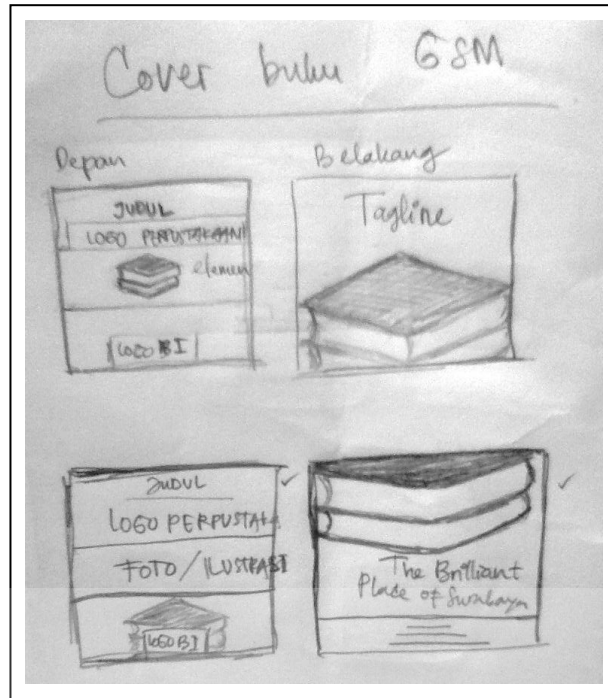 Cover buku GSM
Depan
Belakang
JUDUL
LOGO PERPUSTAKAAN
elemen
LOGO BI
Tagline
JUDUL
LOGO PERPUSTAKA
FOTO/ILUSTRASI
LOGO BI
The Brilliant
Place of Surabaya